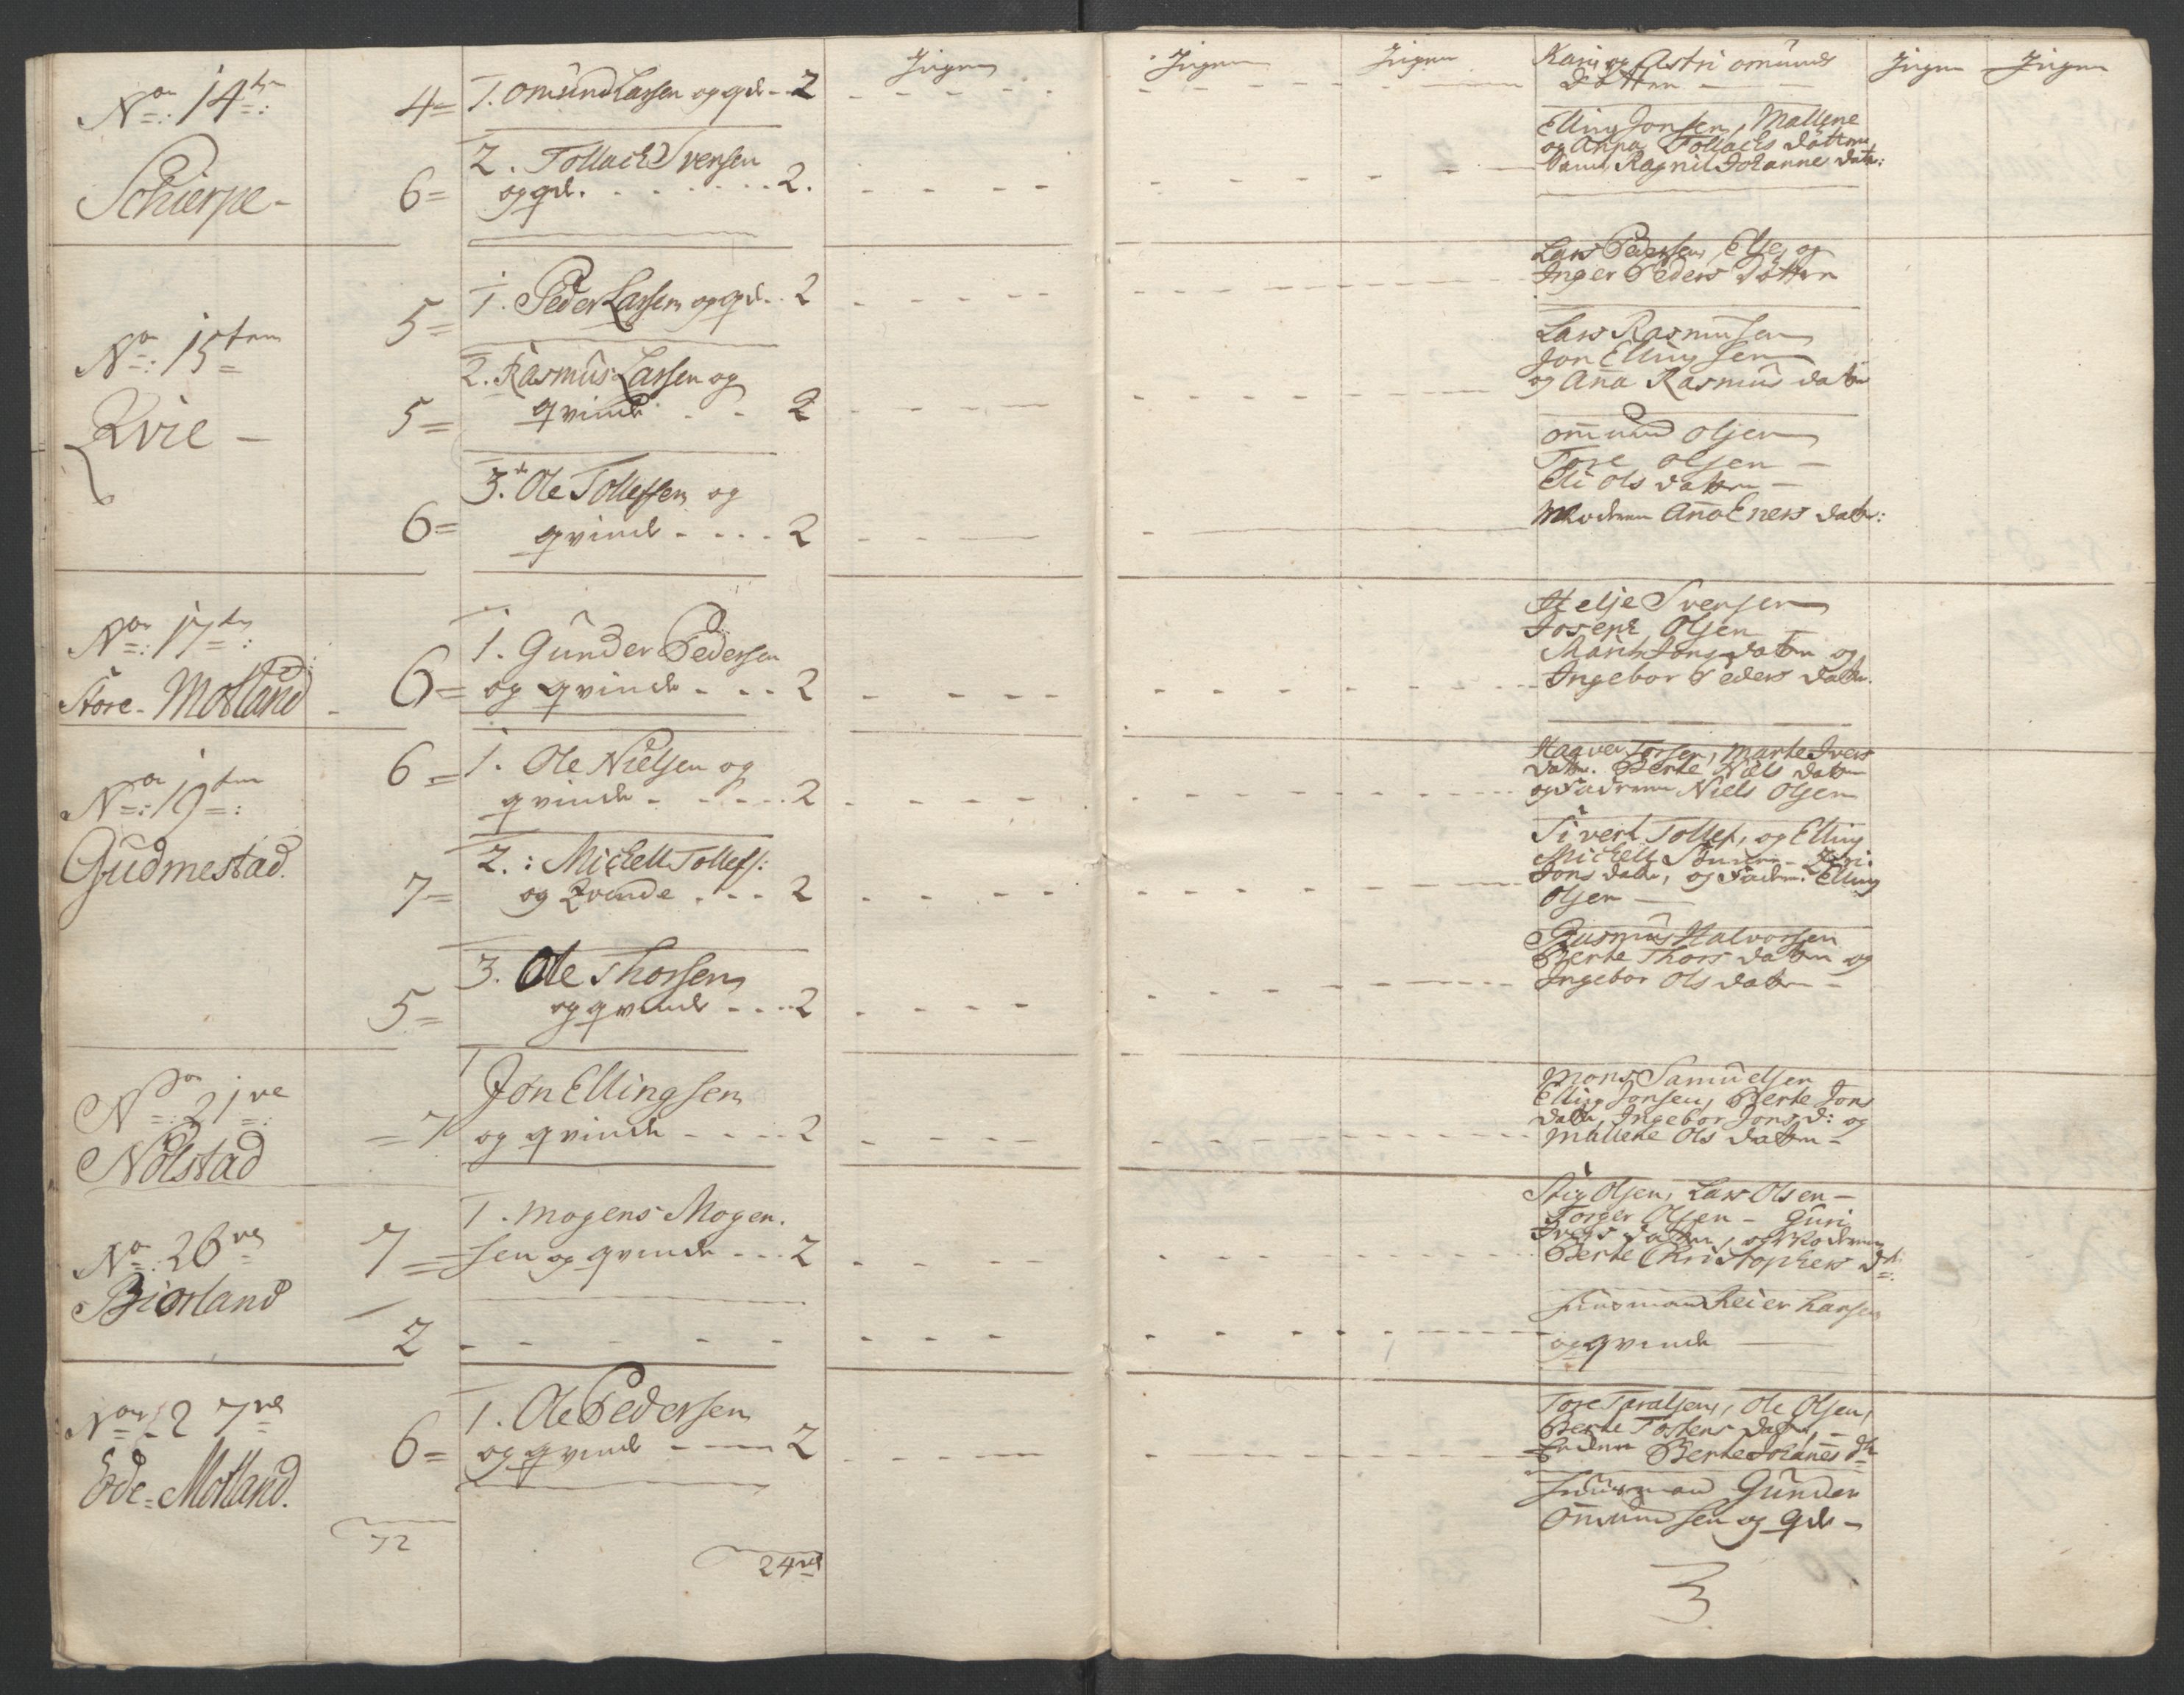 No 14de
Schierpe -
4= 1. Omund Larsen og qv. - 2
Ingen
Ingen
Ingen
Kari og Astri Omunds
døttre
Ingen
Ingen
6= 2. Tollach Svensen
og qv. 2.
Elling Jonsen, Mallene
og Anna Tollachs døttre,
samt Ragnil Johanne datr:
No: 15ten
Qvie -
5= 1. Peder Larsen og qv. 2
Lars Pedersen, Else og
Inger Peders døttre
5= 2. Rasmus Larsen og
qvinde 2
Lars Rasmusen
Jon Ellingsen
og Anna Rasmus datter
6= 3. Ole Tollefsen og
qvinde 2
Ommund Olsen
Tore Olsen -
Eli Ols datter -
Moderen Anna Eners datr:
No: 17de:
Store - Motland -
6= 1. Gunder Pedersen
og qvinde 2
Helje Svensen
Joseph Olsen -
Marit Jons datter og
Ingebor Peders datr.
No: 19ten:
Gudmestad.
6= 1. Ole Nielsen og
qvinde 2
Haaver Torsen, Marte Ivers
datr. Berte Niels datter
og Faderen Niels Olsen
7= 2.: Michell Tollefs:
og Qvinde 2
Sivert Tollef, og Elling
Michell Sønner -
Jons datr, og Fader: Elling
Olsen
5= 3. Ole Thorsen
og qvinde 2
Rasmus Halvorsen
Berte Thors datter og
Ingebor Ols datter -
No: 21ve:
Nølstad
=7 1 Jon Ellingsen
og qvinde 2
Mons Samuelsen
Elling Jonsen, Berte Jons
datr, Ingebor Jons d: og
Mallene Ols datter -
No: 26ve
Biorland
7= 1. Mogens Mogen-
sen og qvinde 2
Stig Olsen, Lars Olsen -
Torger Olsen - Guri
Ivers datter, og Moderen
Berte Christophers dtr:
2
Huusmand Reier Larsen
og qvinde
No: 27ve
Øde - Motland.
6= 1. Ole Pedersen
og qvinde 2
Tore Taralsen, Ole Olsen,
Berte Tostens datr, -
Berte Johannes dtr
Huusmand Gunder
Ommundsen og qv. -
72
24ve
3